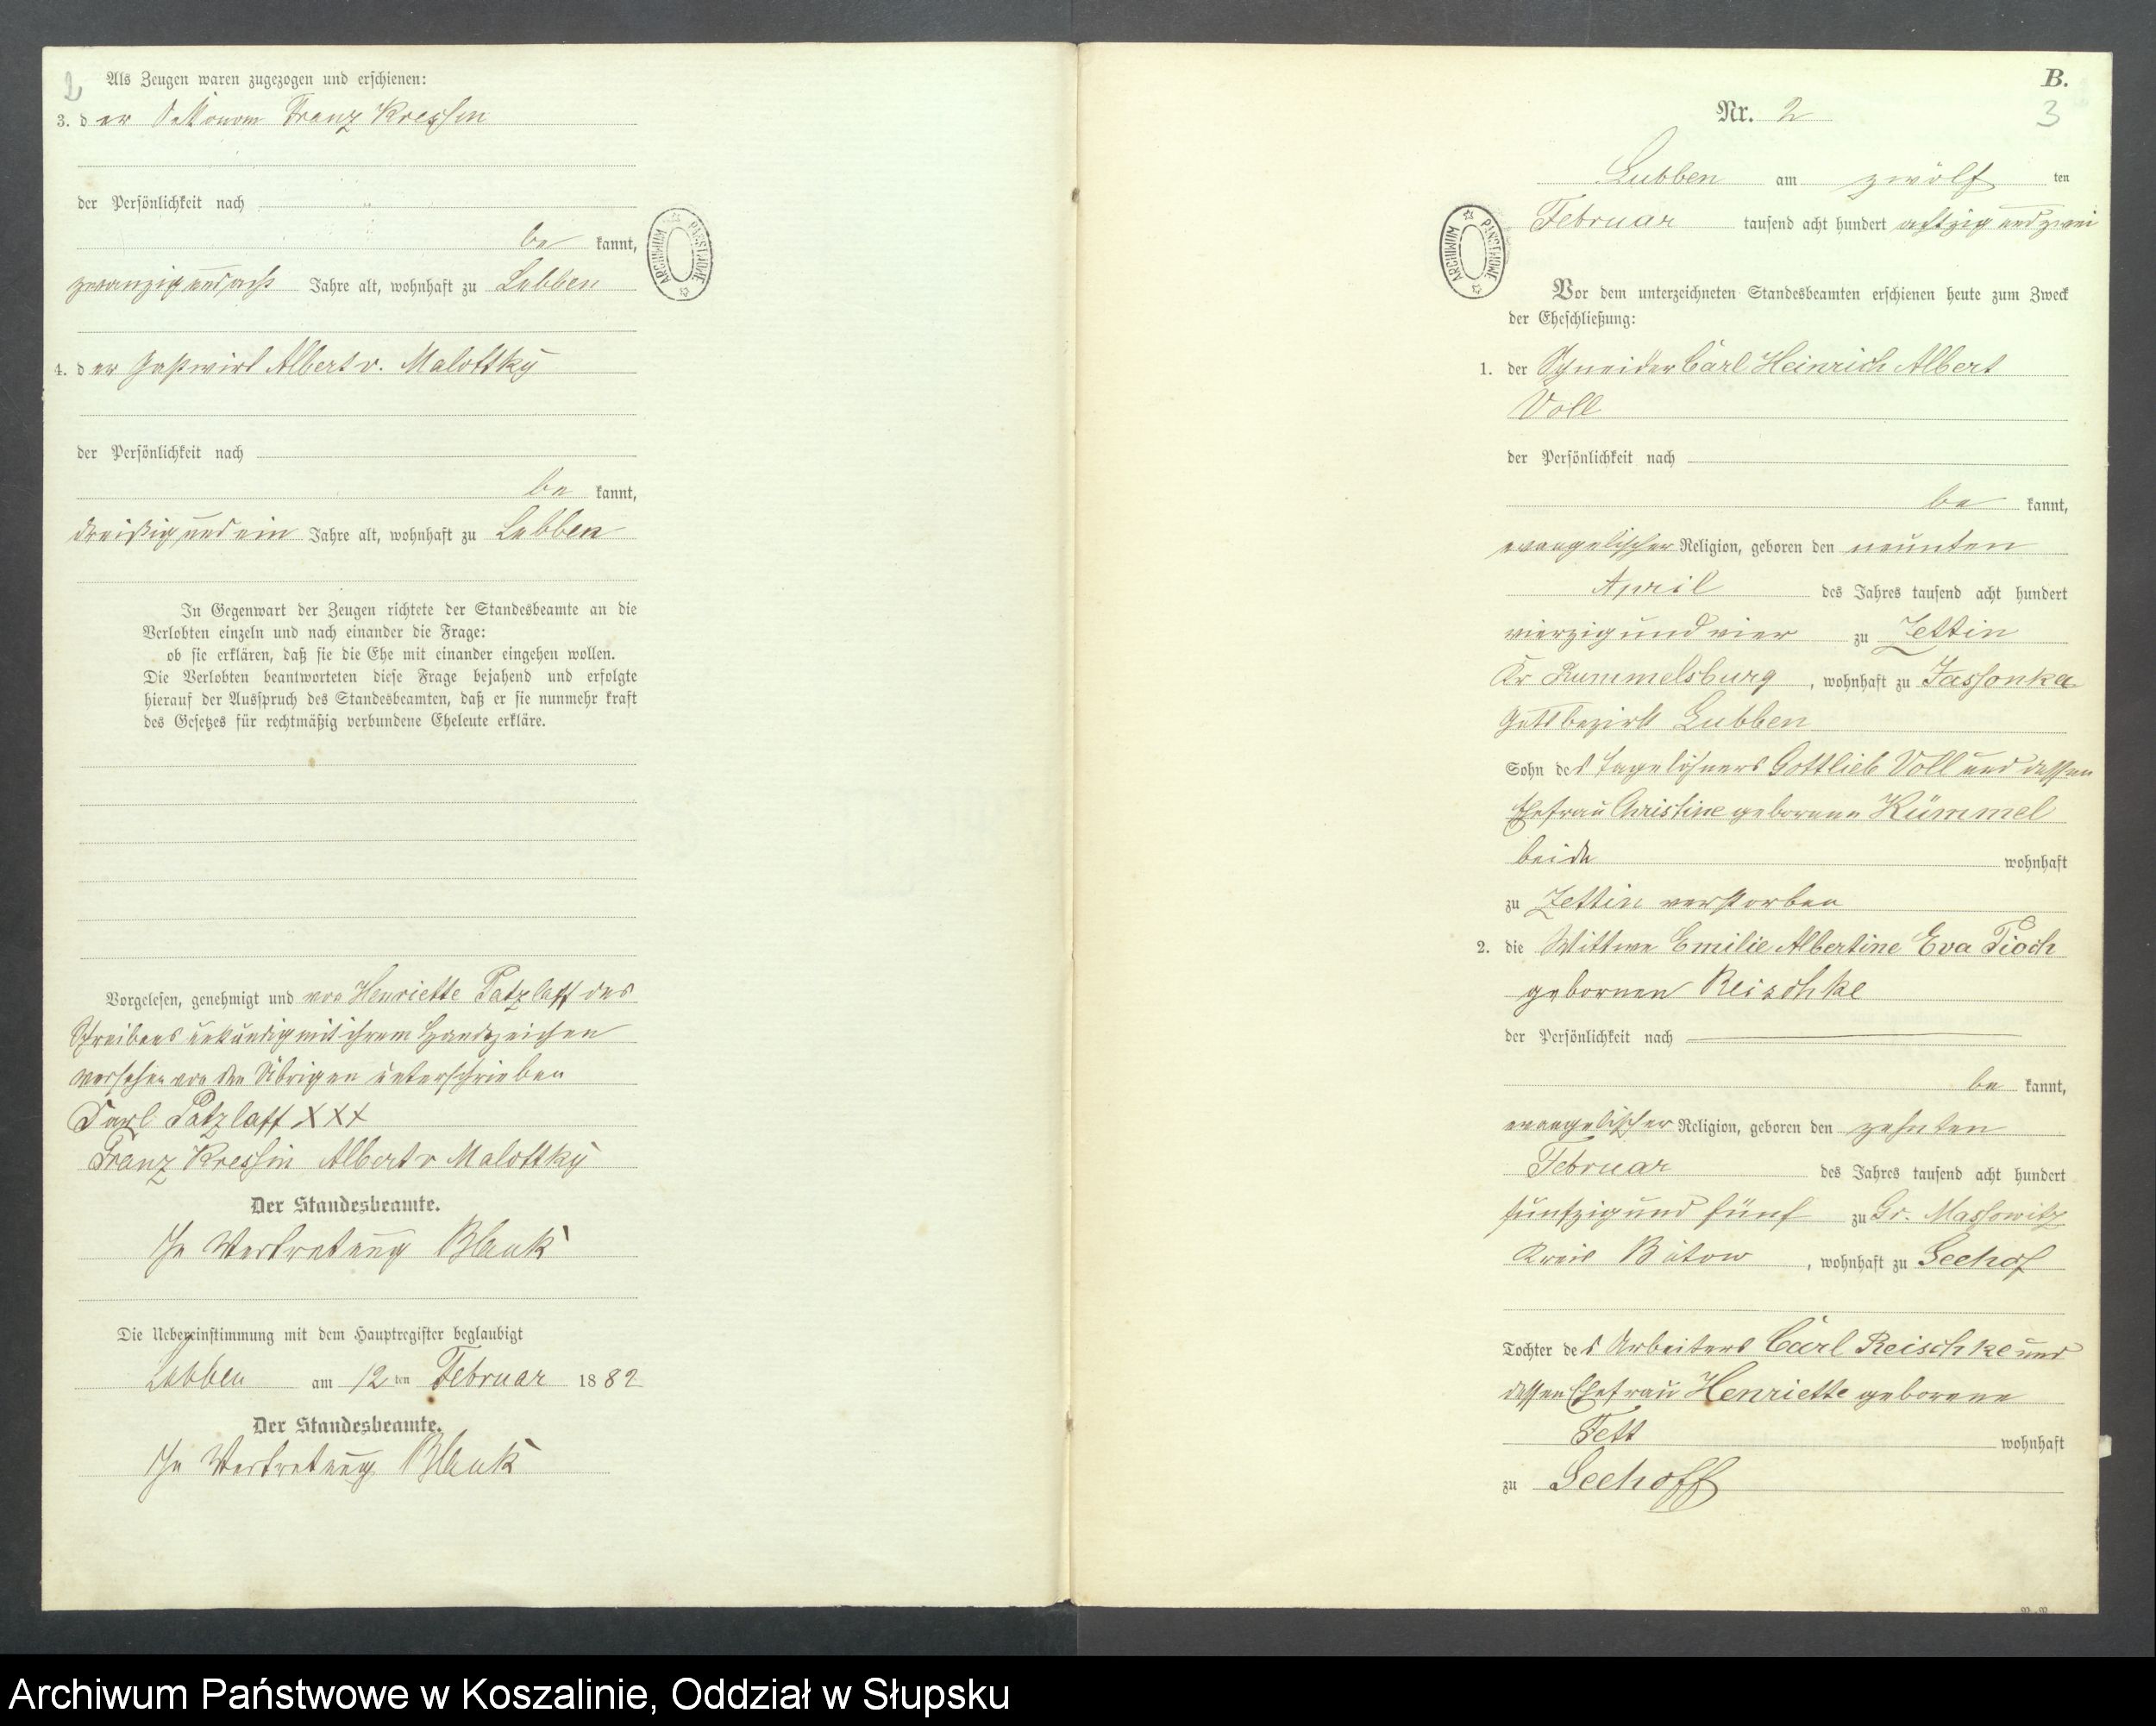 2
Als Zeugen waren zugezogen und erschienen:
3. der Oekonom Franz Kressin
der Persönlichkeit nach
be kannt,
zwanzig und sechs Jahre alt, wohnhaft zu Lubben
4. der Gastwirt Albert v. Malottky
der Persönlichkeit nach
be kannt,
dreißig und ein Jahre alt, wohnhaft zu Lubben
In Gegenwart der Zeugen richtete der Standesbeamte an die
Verlobten einzeln und nach einander die Frage:
ob sie erklären, daß sie die Ehe mit einander eingehen wollen.
Die Verlobten beantworteten diese Frage bejahend und erfolgte
hierauf der Ausspruch des Standesbeamten, daß er sie nunmehr kraft
des Gesetzes für rechtmäßig verbundene Eheleute erkläre.
Vorgelesen, genehmigt und von Henriette Patzlaff des
Schreibens unkundig mit ihrem Handzeichen
versehen von den Übrigen unterschrieben
Carl Patzlaff XXX
Franz Kressin Albert v Malottky
Der Standesbeamte.
In Vertretung Blank
Die Uebereinstimmung mit dem Hauptregister beglaubigt
Lubben am 12 ten Februar 1882
Der Standesbeamte.
In Vertretung Blank
ARCHIWUM PAŃSTWOWE
B.
Nr. 2
3
Lubben am zwölf ten
Februar tausend acht hundert achtzig und zwei
ARCHIWUM PAŃSTWOWE
Vor dem unterzeichneten Standesbeamten erschienen heute zum Zweck
der Eheschließung:
1. der Schneider Carl Heinrich Albert
Voll
der Persönlichkeit nach
be kannt,
evangelischer Religion, geboren den neunten
April des Jahres tausend acht hundert
vierzig und vier zu Zettin
Kr Rummelsburg, wohnhaft zu Jassonka
Gutsbezirk Lubben
Sohn des Tagelöhners Gottlieb Voll und dessen
Ehefrau Christine geborene Kümmel
beide wohnhaft
zu Zettin verstorben
2. die Wittwe Emilie Albertine Eva Pioch
gebornen Reischke
der Persönlichkeit nach
be kannt,
evangelischer Religion, geboren den zehnten
Februar des Jahres tausend acht hundert
fünfzig und fünf zu Gr. Massowitz
Kreis Bütow, wohnhaft zu Seehof
Tochter des Arbeiters Carl Reischke und
dessen Ehefrau Henriette geborene
Fett wohnhaft
zu Seehoff
Archiwum Państwowe w Koszalinie, Oddział w Słupsku